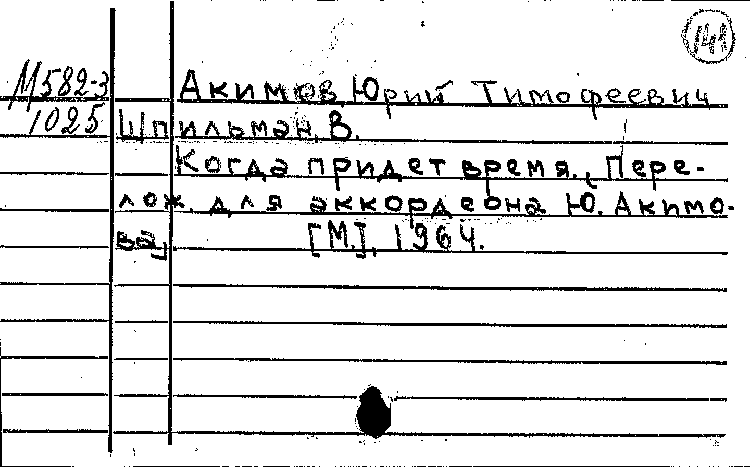 141
М582-3 Акимов Юрий Тимофеевич
1025 Шпильман, В.
Когда придет время. [Пере-
лож. для аккордеона Ю. Акимо-
ва]. [М.], 1964.